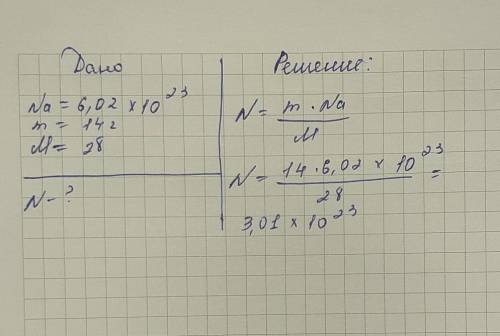 Дано
Na = 6,02 × 10²³
m = 14г
M = 28
N - ?
Решение:
N = m · Na / M
N = 14 · 6,02 × 10²³ / 28 =
3,01 × 10²³